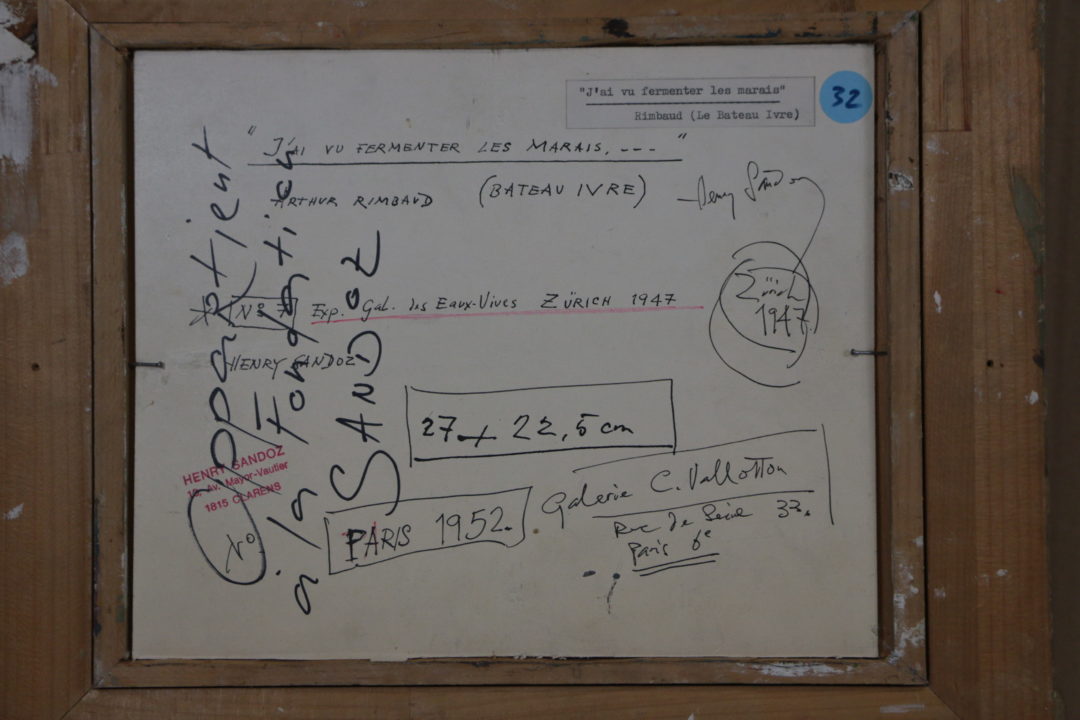 "J'ai vu fermenter les marais"
Rimbaud (Le Bateau Ivre)
32
"J'AI VU FERMENTER LES MARAIS, ---"
ARTHUR RIMBAUD (BATEAU IVRE)
Henry Sandoz
* No 7 Exp. Gal. des Eaux-Vives ZÜRICH 1947
Zürich
1947.
HENRY SANDOZ
27 x 22,5 cm
HENRY SANDOZ
Av. Mayor-Vautier
1815 CLARENS
PARIS 1952.
Galerie C. Vallotton
Rue de Seine 33.
Paris 6e
No
appartient
à la fondation
SANDOZ